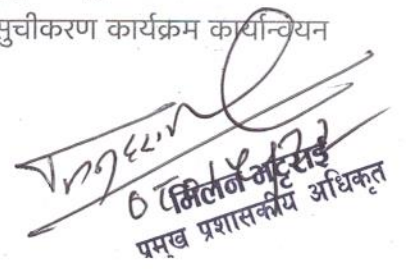 सुचीकरण कार्यक्रम कार्यान्वयन
मिलन भट्टराई
प्रमुख प्रशासकीय अधिकृत